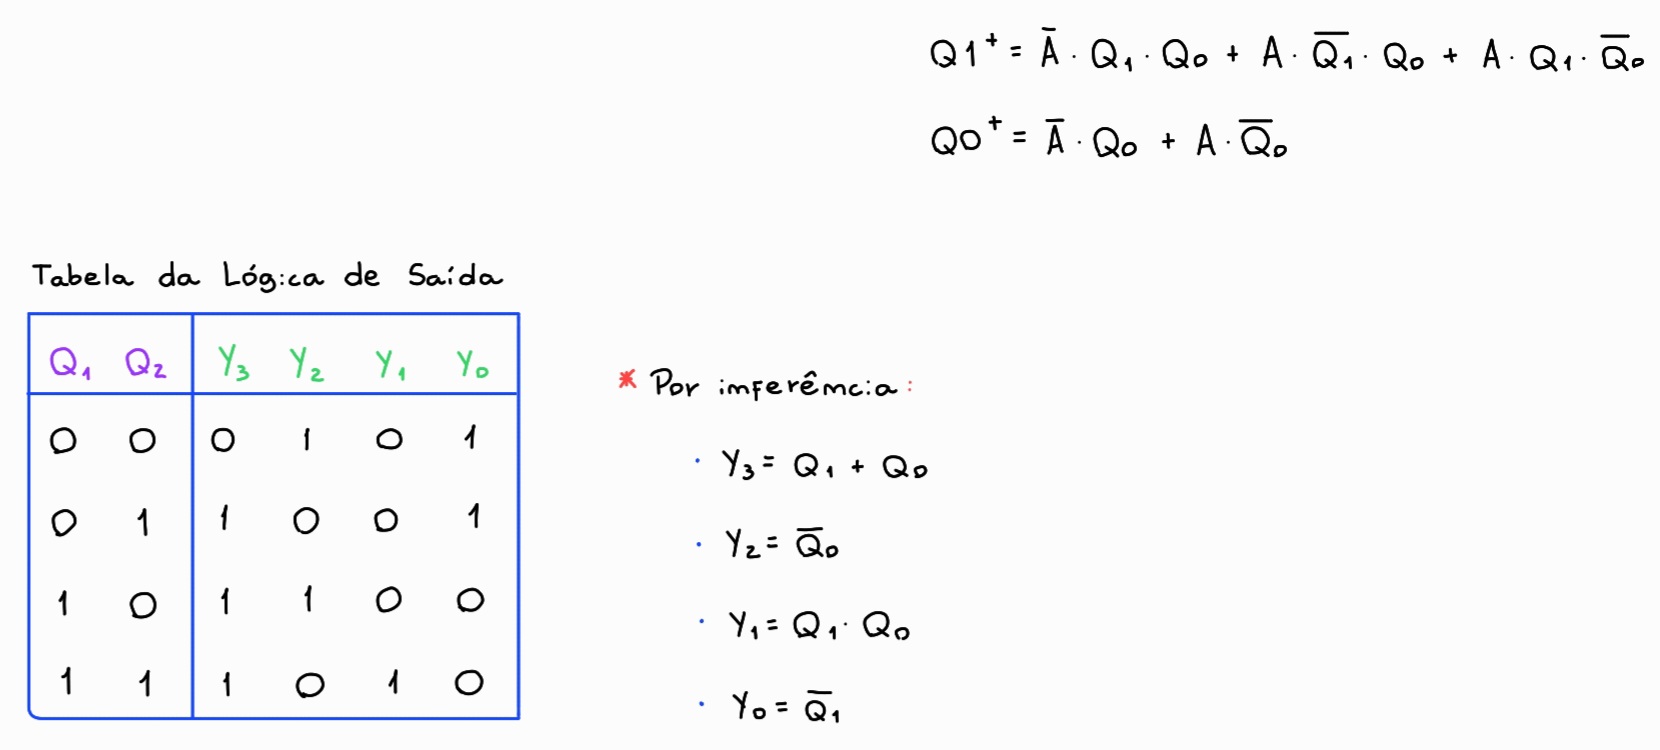 Q1⁺ = A̅ · Q₁ · Q₀ + A · Q̅₁ · Q₀ + A · Q₁ · Q̅₀
Q0⁺ = A̅ · Q₀ + A · Q̅₀
Tabela da Lógica de Saída
Q₁ Q₂ Y₃ Y₂ Y₁ Y₀
0 0 0 1 0 1
0 1 1 0 0 1
1 0 1 1 0 0
1 1 1 0 1 0
* Por inferência:
· Y₃ = Q₁ + Q₀
· Y₂ = Q̅₀
· Y₁ = Q₁ · Q₀
· Y₀ = Q̅₁